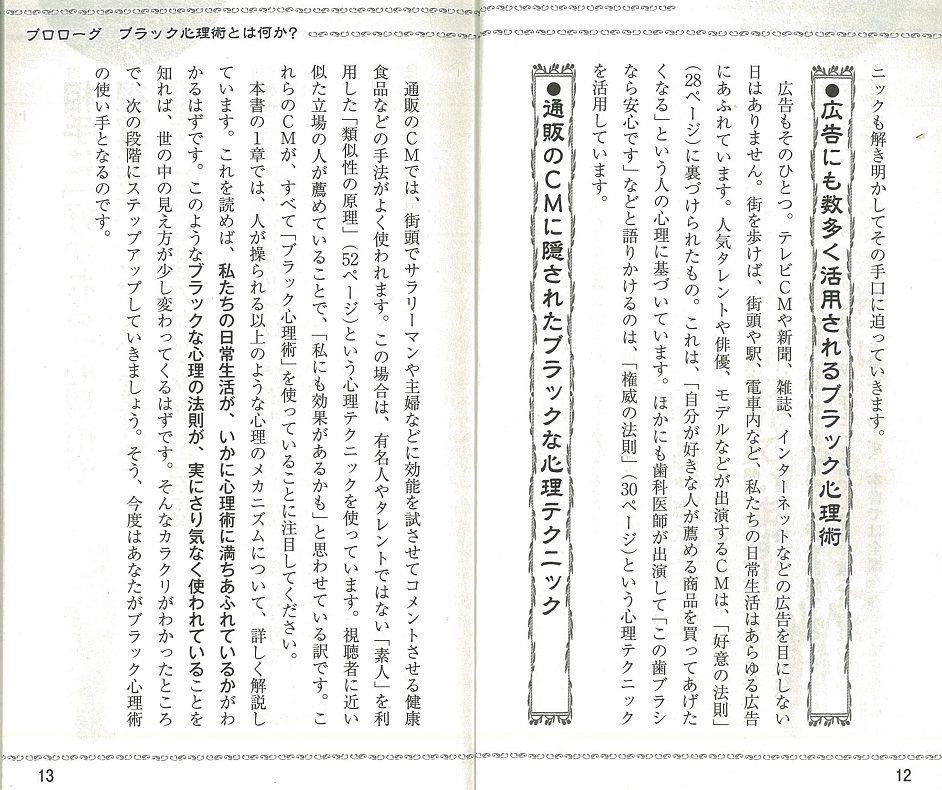 ニックも解き明かしてその手口に迫っていきます。
●広告にも数多く活用されるブラック心理術
広告もそのひとつ。テレビCMや新聞、雑誌、インターネットなどの広告を目にしない
日はありません。街を歩けば、街頭や駅、電車内など、私たちの日常生活はあらゆる広告
にあふれています。人気タレントや俳優、モデルなどが出演するCMは、「好意の法則」
(28ページ)に裏づけられたもの。これは、「自分が好きな人が薦める商品を買ってあげた
くなる」という人の心理に基づいています。ほかにも歯科医師が出演して「この歯ブラシ
なら安心です」などと語りかけるのは、「権威の法則」(30ページ)という心理テクニック
を活用しています。
●通販のCMに隠されたブラックな心理テクニック
12
プロローグ ブラック心理術とは何か?
通販のCMでは、街頭でサラリーマンや主婦などに効能を試させてコメントさせる健康
食品などの手法がよく使われます。この場合は、有名人やタレントではない「素人」を利
用した「類似性の原理」(52ページ)という心理テクニックを使っています。視聴者に近い
似た立場の人が薦めていることで、「私にも効果があるかも」と思わせている訳です。こ
れらのCMが、すべて「ブラック心理術」を使っていることに注目してください。
本書の1章では、人が操られる以上のような心理のメカニズムについて、詳しく解説し
ています。これを読めば、私たちの日常生活が、いかに心理術に満ちあふれているかがわ
かるはずです。このようなブラックな心理の法則が、実にさり気なく使われていることを
知れば、世の中の見え方が少し変わってくるはずです。そんなカラクリがわかったところ
で、次の段階にステップアップしていきましょう。そう、今度はあなたがブラック心理術
の使い手となるのです。
13